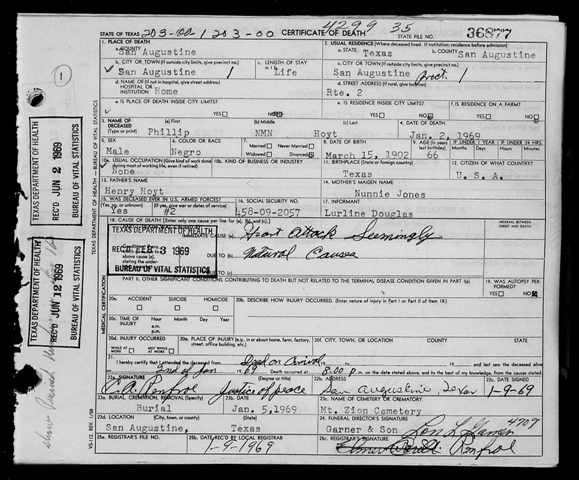 4299 35
STATE OF TEXAS 203-00-1203-00 CERTIFICATE OF DEATH STATE FILE NO. 36877
1. PLACE OF DEATH
a. COUNTY
San Augustine
2. USUAL RESIDENCE (Where deceased lived. If institution: residence before admission)
a. STATE Texas b. COUNTY San Augustine
b. CITY OR TOWN (If outside city limits, give precinct no.)
San Augustine 1
c. LENGTH OF STAY
Life
c. CITY OR TOWN (If outside city limits, give precinct no.)
San Augustine Prct. 1
d. NAME OF (If not in hospital, give street address)
HOSPITAL OR
INSTITUTION Home
d. STREET ADDRESS (If rural, give location)
Rte. 2
e. IS PLACE OF DEATH INSIDE CITY LIMITS?
YES NO
e. IS RESIDENCE INSIDE CITY LIMITS?
YES NO
f. IS RESIDENCE ON A FARM?
YES NO
3. NAME OF DECEASED
(Type or print)
(a) First Phillip
(b) Middle NMN
(c) Last Hoyt
4. DATE OF DEATH
Jan. 2, 1969
5. SEX
Male
6. COLOR OR RACE
Negro
7. Married Never Married
Widowed Divorced
8. DATE OF BIRTH
March 15, 1902
9. AGE (In years last birthday)
66
IF UNDER 1 YEAR
IF UNDER 24 HRS.
10a. USUAL OCCUPATION (Give kind of work done during most of working life, even if retired)
None
10b. KIND OF BUSINESS OR INDUSTRY
11. BIRTHPLACE
Texas
12. CITIZEN OF WHAT COUNTRY?
U. S. A.
13. FATHER'S NAME
Henry Hoyt
14. MOTHER'S MAIDEN NAME
Nunnie Jones
15. WAS DECEASED EVER IN U.S. ARMED FORCES?
Yes #2
16. SOCIAL SECURITY NO.
458-09-2057
17. INFORMANT
Lurline Douglas
18. CAUSE OF DEATH
Heart Attack Seemingly
DUE TO Natural Causes
TEXAS DEPARTMENT OF HEALTH
REC'D FEB 3 1969
BUREAU OF VITAL STATISTICS
INTERVAL BETWEEN ONSET AND DEATH
PART II. OTHER SIGNIFICANT CONDITIONS CONTRIBUTING TO DEATH BUT NOT RELATED TO THE TERMINAL DISEASE CONDITION GIVEN IN PART I(a)
19. WAS AUTOPSY PERFORMED?
YES NO
20a. ACCIDENT SUICIDE HOMICIDE
20b. DESCRIBE HOW INJURY OCCURRED. (Enter nature of injury in Part I or Part II of item 18)
20c. TIME OF INJURY
Hour Month Day Year
a.m.
p.m.
20d. INJURY OCCURRED
WHILE AT WORK NOT WHILE AT WORK
20e. PLACE OF INJURY (e.g., in or about home, farm, factory, street, office building, etc.)
20f. CITY, TOWN, OR LOCATION COUNTY STATE
21. I hereby certify that I attended the deceased from Dead on Arrival
2nd of Jan 69 Death occurred at 8:00 p.m. on the date stated above, and to the best of my knowledge, from the causes stated.
22a. SIGNATURE (Degree or title)
Justice of peace
22b. ADDRESS
San Augustine Texas
22c. DATE SIGNED
1-9-69
23a. BURIAL, CREMATION, REMOVAL (Specify)
Burial
23b. DATE
Jan. 5, 1969
23c. NAME OF CEMETERY OR CREMATORY
Mt. Zion Cemetery
23d. LOCATION (City, town, or county) (State)
San Augustine, Texas
24. FUNERAL DIRECTOR'S SIGNATURE
Garner & Son 4707
25a. REGISTRAR'S FILE NO.
25b. DATE REC'D BY LOCAL REGISTRAR
1-9-1969
25c. REGISTRAR'S SIGNATURE
MEDICAL CERTIFICATION
VS-112 REV. 1/58
TEXAS DEPARTMENT OF HEALTH - BUREAU OF VITAL STATISTICS
1
TEXAS DEPARTMENT OF HEALTH
REC'D JUN 2 1969
BUREAU OF VITAL STATISTICS
TEXAS DEPARTMENT OF HEALTH
REC'D JUN 12 1969
BUREAU OF VITAL STATISTICS